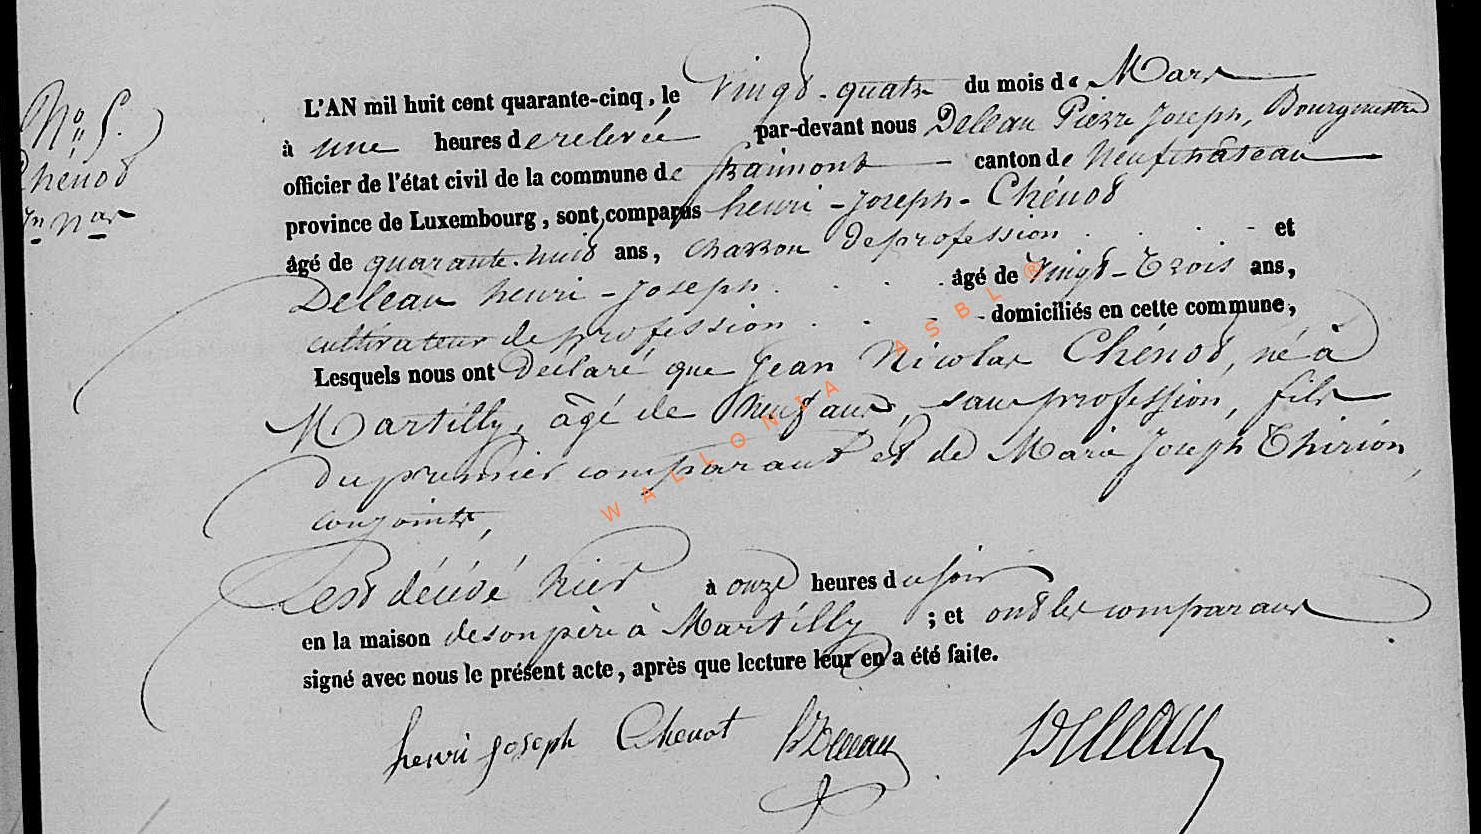 N° 5.
Chénot
Jn Nas
L'AN mil huit cent quarante-cinq, le Vingt-quatre du mois de Mars
à une heures de relevée par-devant nous Deleau Pierre Joseph, Bourgmestre
officier de l'état civil de la commune de Straimont canton de Neufchâteau
province de Luxembourg, sont comparus henri-Joseph-Chénot
âgé de quarante-huit ans, charron de profession et
Deleau henri-Joseph âgé de Vingt-Trois ans,
cultivateur de profession domiciliés en cette commune,
Lesquels nous ont Déclaré que Jean Nicolas Chénot, né à
Martilly, âgé de Neuf ans, sans profession, fils
du premier comparant et de Marie Joseph Thirion,
conjoints,
est décédé hier à onze heures du soir
en la maison de son père à Martilly ; et ont les comparans
signé avec nous le présent acte, après que lecture leur en a été faite.
henri joseph Chenot hJDeleau PJDeleau
WALLONIA ASBL ®